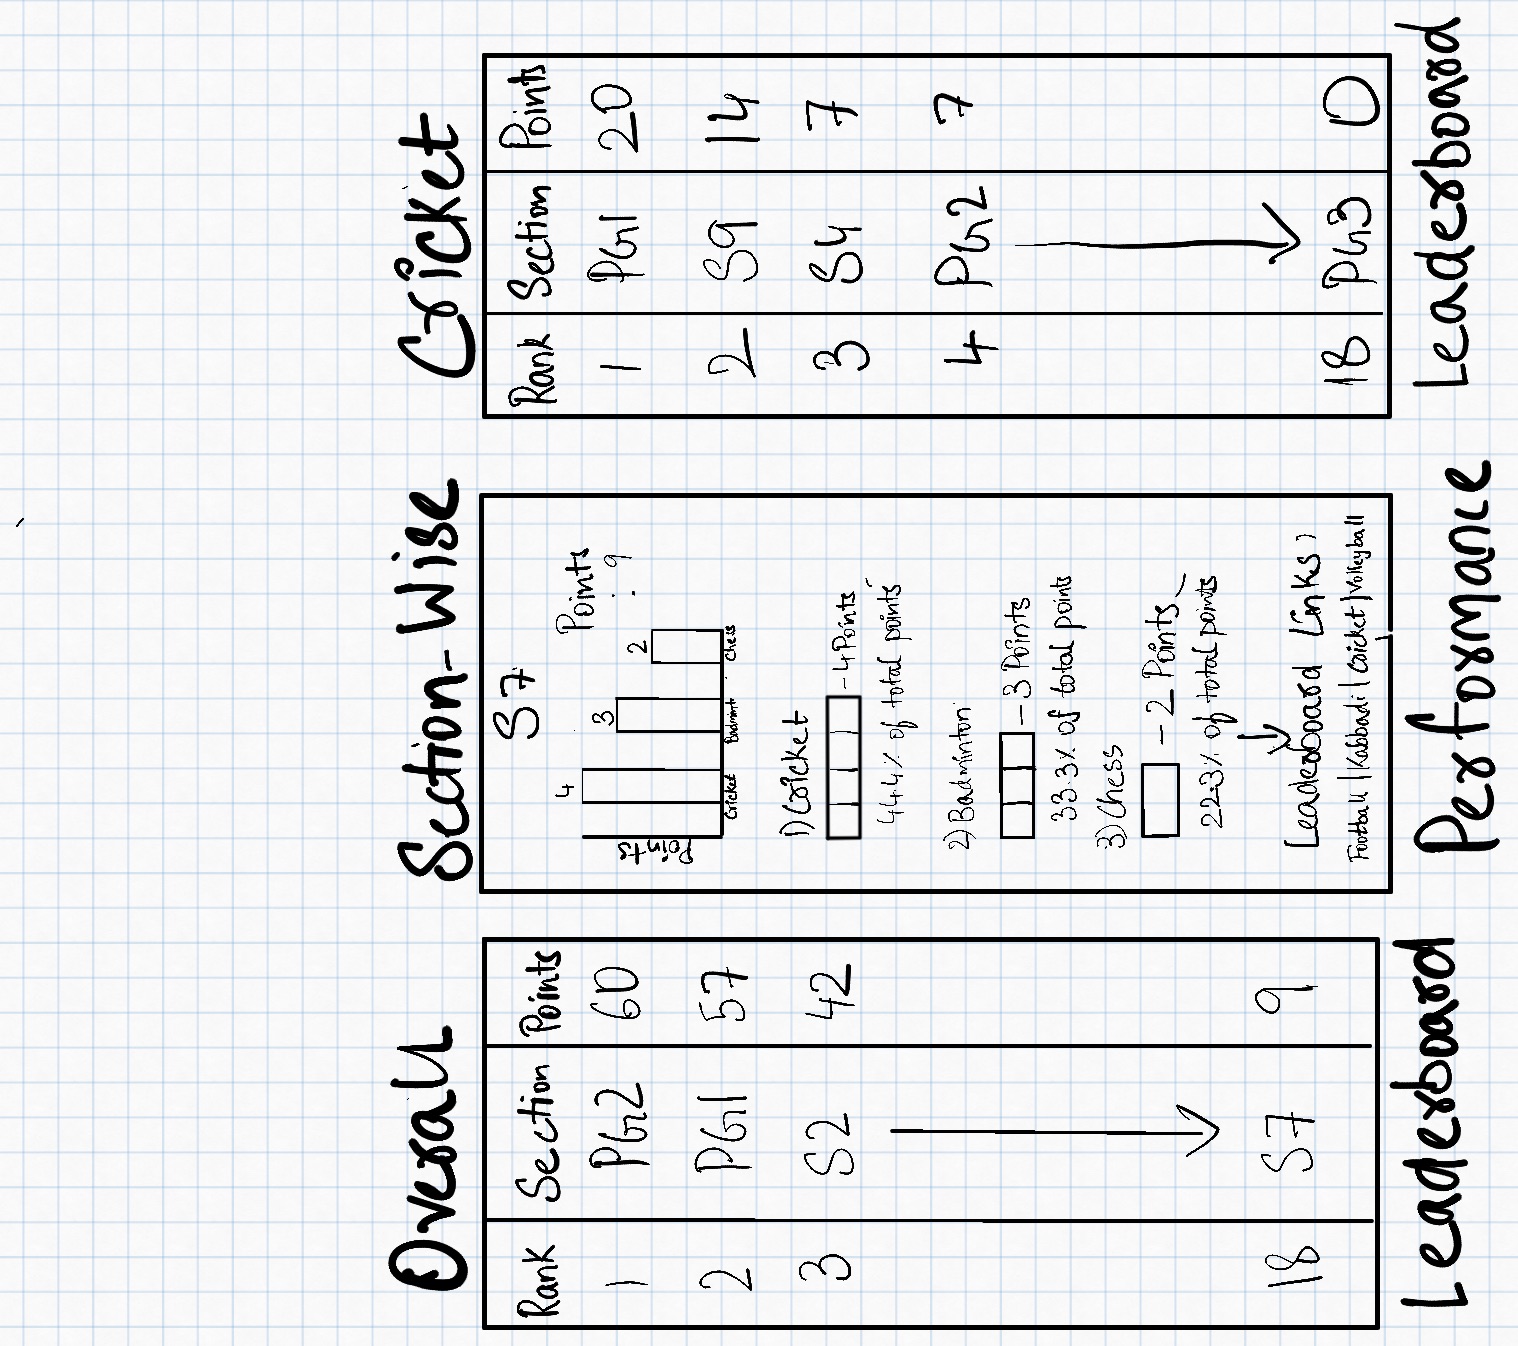 Overall
Rank Section Points
1 PG2 60
2 PG1 57
3 S2 42
18 S7 9
Leaderboard
Section-Wise
S7
Points
: 9
4
3
2
Points
Cricket Badmint Chess
1) Cricket
- 4 Points
44.4% of total points
2) Badminton
- 3 Points
33.3% of total points
3) Chess
- 2 Points
22.3% of total points
Leaderboard Links :
Football | Kabbadi | Cricket | Volleyball
Performance
Cricket
Rank Section Points
1 PG1 20
2 S9 14
3 S4 7
4 PG2 7
18 PG3 0
Leaderboard